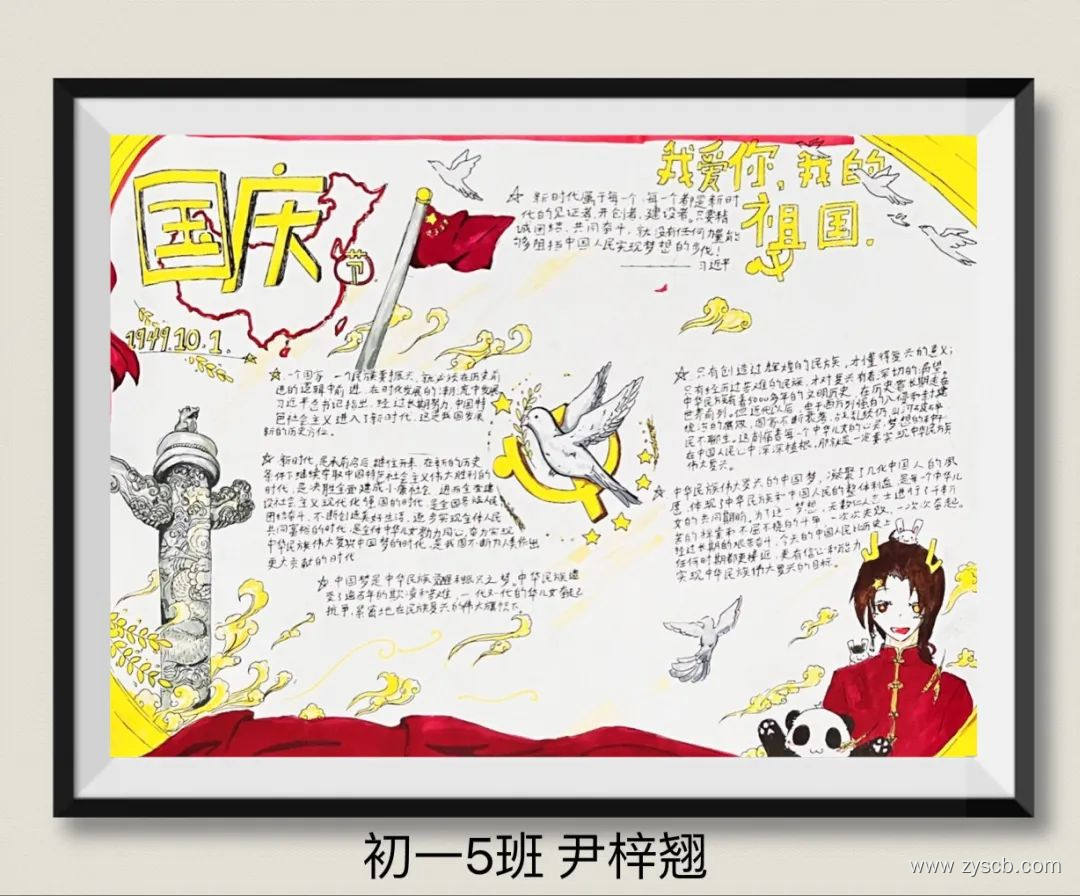 国庆
节
1949.10.1.
我爱你,我的
祖国.
☆ 新时代属于每一个,每一个都是新时
代的见证者,开创者,建设者。只要精
诚团结,共同奋斗,就没有任何力量能
够阻挡中国人民实现梦想的步伐!
——习近平
☆ 一个国家,一个民族要振兴,就必须在历史前
进的逻辑中前进,在时代发展的潮流中发展
习近平总书记指出,经过长期努力,中国特
色社会主义进入了新时代,这是我国发展
新的历史方位。
☆ 新时代,是承前启后、继往开来、在新的历史
条件下继续夺取中国特色社会主义伟大胜利的
时代,是决胜全面建成小康社会、进而全面建
设社会主义现代化强国的时代,是全国各族人民
团结奋斗、不断创造美好生活、逐步实现全体人民
共同富裕的时代,是全体中华儿女勠力同心、奋力实现
中华民族伟大复兴中国梦的时代,是我国不断为人类作出
更大贡献的时代
☆ 中国梦是中华民族觉醒和振兴之梦。中华民族遭
受了逾百年的欺凌和苦难,一代又一代的华儿女奋起
抗争,紧密地在民族复兴的伟大旗帜下。
☆ 只有创造过辉煌的民族,才懂得复兴的意义;
只有经历过苦难的民族,才对复兴有着深切的渴望。
中华民族有着5000多年的文明历史,在历史曾长期走在
世界前列。但近代以后,由于西方列强的入侵和封建
统治的腐败,国家不断衰落,战乱频仍,山河破碎,
民不聊生。这割痛着每一个中华儿女的心灵,梦想的种子
在中国人民心中深深植根,那就是一定要实现中华民族
伟大复兴。
中华民族伟大复兴的中国梦,凝聚了几代中国人的夙
愿,体现了中华民族和中国人民的整体利益,是每个中华儿
女的共同期盼。为了这一梦想,无数仁人志士进行了千辛万
苦的探索和不屈不挠的斗争,一次次失败,一次次奋起。
经过长期的艰苦奋斗,今天的中国人民比历史上
任何时期都更接近、更有信心和能力
实现中华民族伟大复兴的目标。
初一5班 尹梓翘
www.zyscb.com